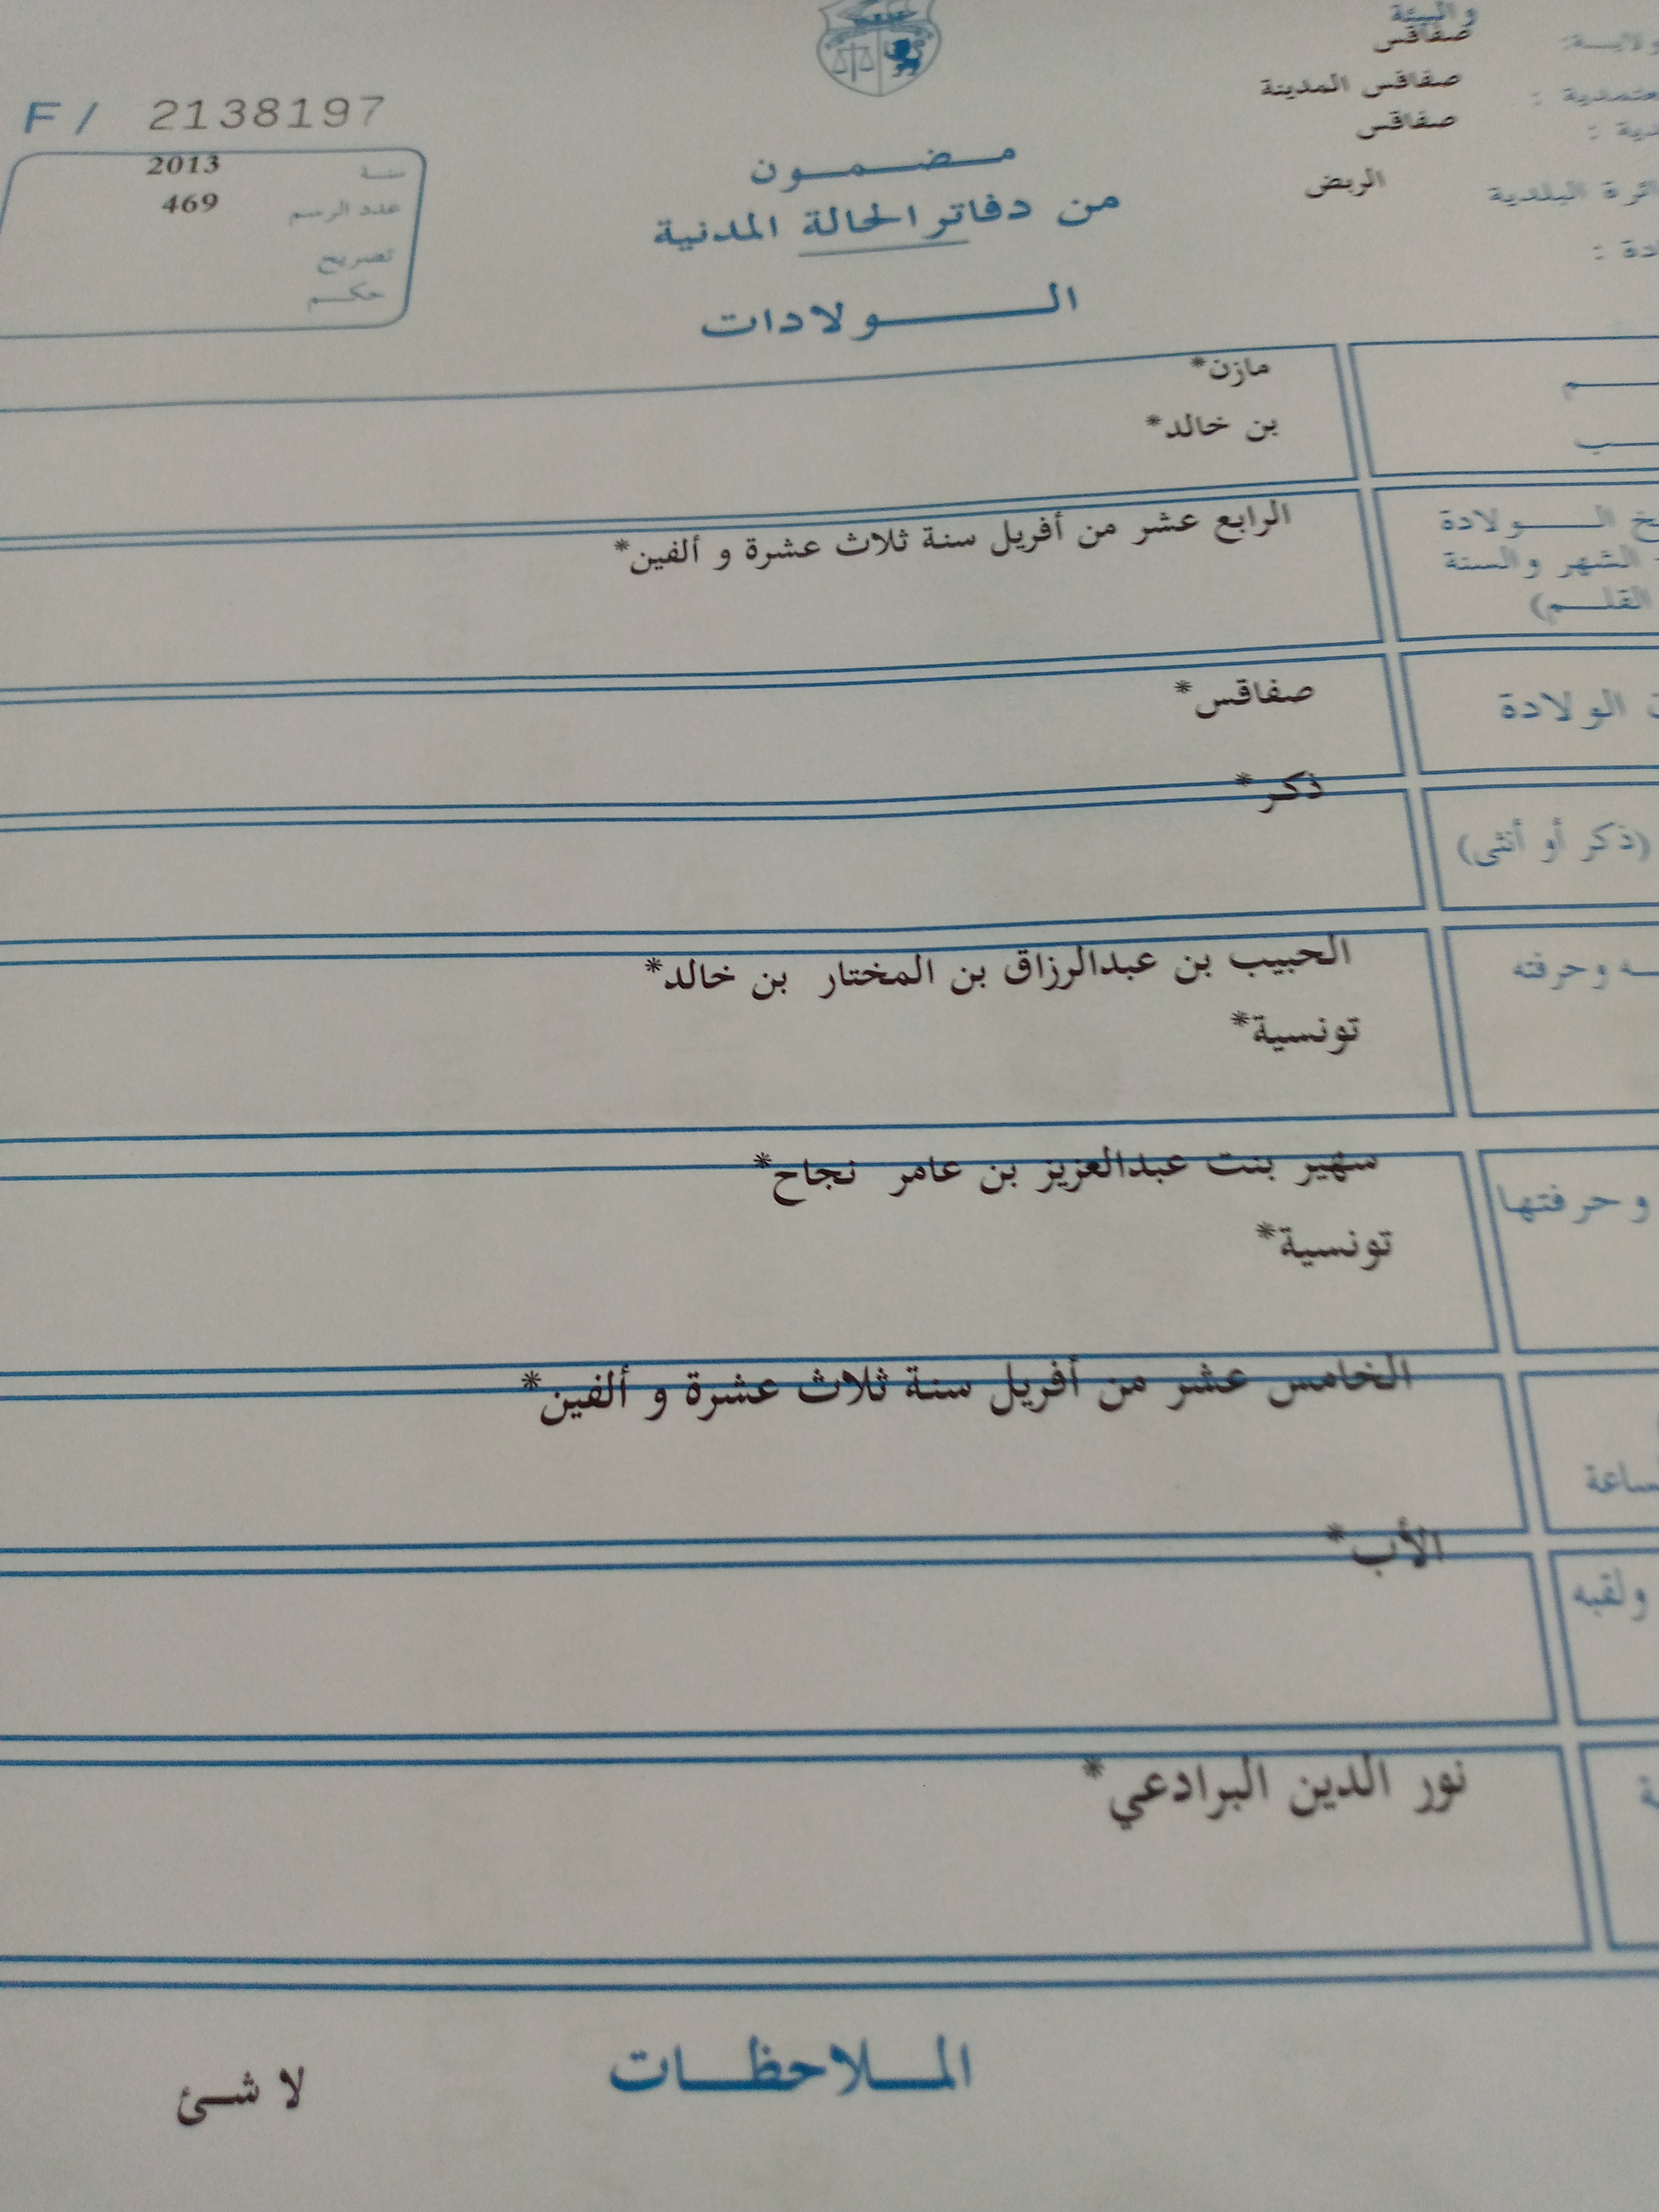 والبيئة
صفاقس
صفاقس المدينة
صفاقس
البلدية الربض
F/ 2138197
سنة 2013
عدد الرسم 469
تصريح
حكم
مضمون
من دفاتر الحالة المدنية
الولادات
مازن*
بن خالد*
الولادة الرابع عشر من أفريل سنة ثلاث عشرة و ألفين*
الشهر والسنة
القلم)
الولادة صفاقس*
ذكر*
(ذكر أو أنثى)
وحرفته الحبيب بن عبدالرزاق بن المختار بن خالد*
تونسية*
وحرفتها سهير بنت عبدالعزيز بن عامر نجاح*
تونسية*
الخامس عشر من أفريل سنة ثلاث عشرة و ألفين*
الأب*
ولقبه
نور الدين البرادعي*
الملاحظات
لا شئ